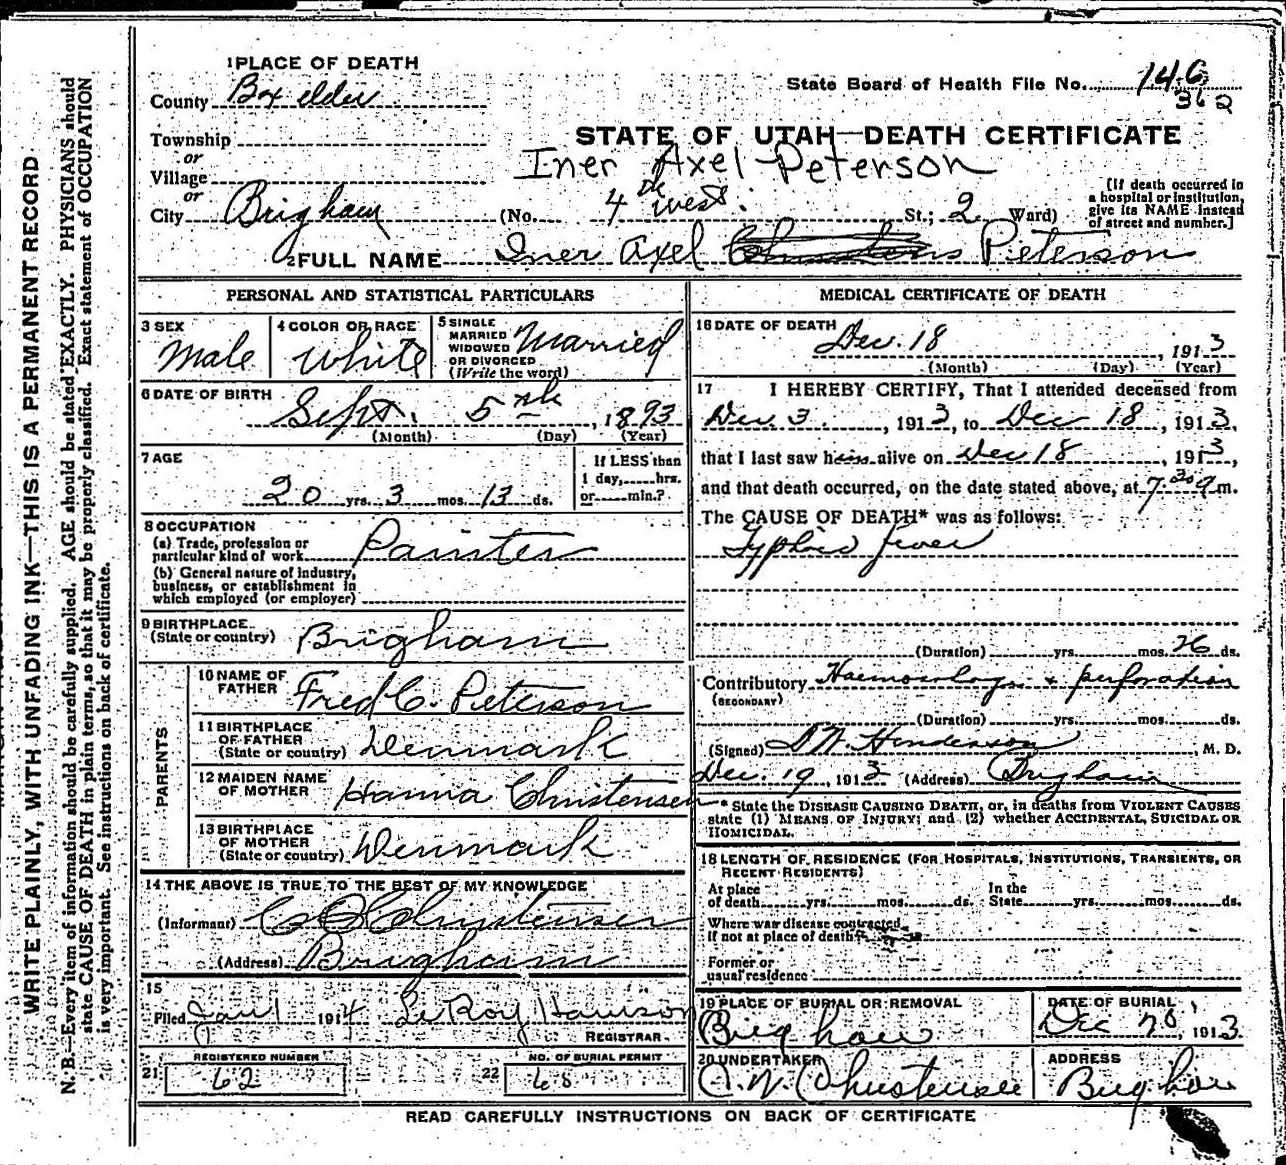 1 PLACE OF DEATH
County Box elder
State Board of Health File No. 146
362
Township
or
Village
or
City Brigham
STATE OF UTAH—DEATH CERTIFICATE
Iner Axel Peterson
(No. 4th west. St.; 2 Ward)
[If death occurred in
a hospital or institution,
give its NAME instead
of street and number.]
2 FULL NAME Iner Axel Peterson
PERSONAL AND STATISTICAL PARTICULARS
3 SEX
Male
4 COLOR OR RACE
White
5 SINGLE
MARRIED
WIDOWED
OR DIVORCED
(Write the word)
Married
6 DATE OF BIRTH
Sept. 5th, 1893
(Month) (Day) (Year)
7 AGE
20 yrs. 3 mos. 13 ds.
If LESS than
1 day, hrs.
or min.?
8 OCCUPATION
(a) Trade, profession or
particular kind of work Painter
(b) General nature of industry,
business, or establishment in
which employed (or employer)
9 BIRTHPLACE
(State or country) Brigham
PARENTS
10 NAME OF
FATHER Fred C. Peterson
11 BIRTHPLACE
OF FATHER
(State or country) Denmark
12 MAIDEN NAME
OF MOTHER Hanna Christensen
13 BIRTHPLACE
OF MOTHER
(State or country) Denmark
14 THE ABOVE IS TRUE TO THE BEST OF MY KNOWLEDGE
(Informant) Christensen
(Address) Brigham
15
Filed Jan 1 1914 LeRoy
REGISTRAR.
REGISTERED NUMBER
21 62
NO. OF BURIAL PERMIT
22 68
MEDICAL CERTIFICATE OF DEATH
16 DATE OF DEATH
Dec. 18, 1913
(Month) (Day) (Year)
17 I HEREBY CERTIFY, That I attended deceased from
Dec. 3, 1913, to Dec 18, 1913,
that I last saw him alive on Dec 18, 1913,
and that death occurred, on the date stated above, at 7.30 m.
The CAUSE OF DEATH* was as follows:
Typhoid fever
(Duration) yrs. mos. 26 ds.
Contributory + perforation
(SECONDARY)
(Duration) yrs. mos. ds.
(Signed) Henderson, M. D.
Dec. 19, 1913 (Address) Brigham
* State the DISEASE CAUSING DEATH, or, in deaths from VIOLENT CAUSES
state (1) MEANS OF INJURY; and (2) whether ACCIDENTAL, SUICIDAL OR
HOMICIDAL.
18 LENGTH OF RESIDENCE (FOR HOSPITALS, INSTITUTIONS, TRANSIENTS, OR
RECENT RESIDENTS)
At place
of death yrs. mos. ds.
In the
State yrs. mos. ds.
Where was disease contracted
if not at place of death?
Former or
usual residence
19 PLACE OF BURIAL OR REMOVAL
Brigham
DATE OF BURIAL
Dec 20, 1913
20 UNDERTAKER
Christensen
ADDRESS
Brigham
READ CAREFULLY INSTRUCTIONS ON BACK OF CERTIFICATE
WRITE PLAINLY, WITH UNFADING INK—THIS IS A PERMANENT RECORD
N. B.—Every item of information should be carefully supplied. AGE should be stated EXACTLY. PHYSICIANS should
state CAUSE OF DEATH in plain terms, so that it may be properly classified. Exact statement of OCCUPATION
is very important. See instructions on back of certificate.